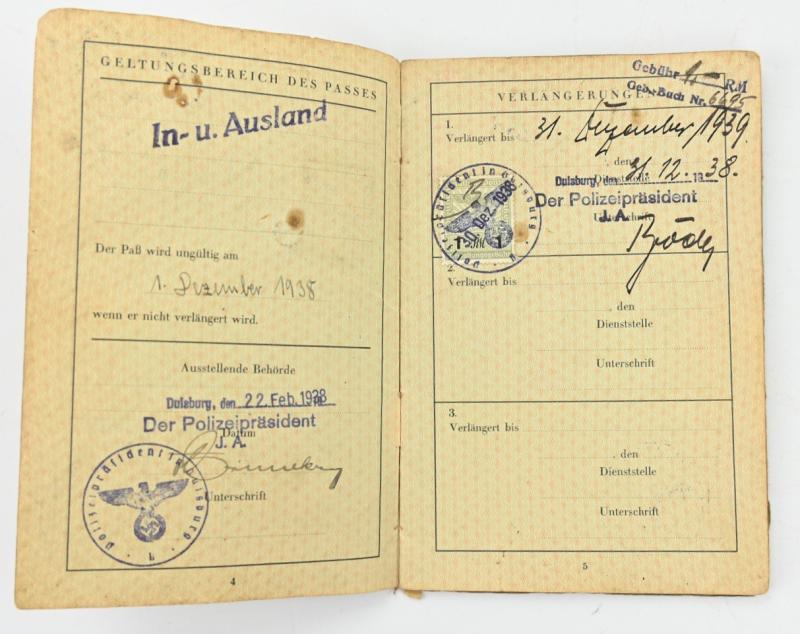 GELTUNGSBEREICH DES PASSES
In- u. Ausland
Der Paß wird ungültig am
1. Dezember 1938
wenn er nicht verlängert wird.
Ausstellende Behörde
Duisburg, den 22. Feb. 1938
Der Polizeipräsident
Datum
J. A.
Unterschrift
Polizeipräsident in Duisburg
4
Gebühr RM
Geb.-Buch Nr. 6695
VERLÄNGERUNGEN
1.
Verlängert bis 31. Dezember 1939
, den
Dienststelle
Duisburg, den 31. 12. 1938.
Der Polizeipräsident
J. A.
Unterschrift
Polizeipräsident in Duisburg
Dez. 1938
1 1
2.
Verlängert bis
, den
Dienststelle
Unterschrift
3.
Verlängert bis
, den
Dienststelle
Unterschrift
5